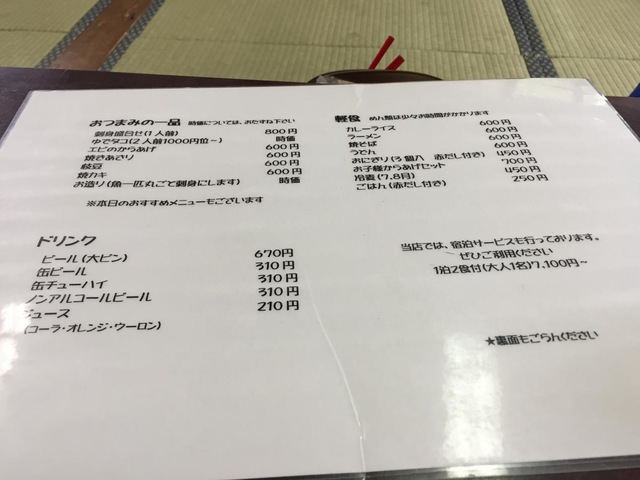 おつまみの一品 時価については、おたずね下さい
刺身盛合せ(1人前) 800円
ゆでタコ(2人前1000円位~) 時価
エビのからあげ 600円
焼きあさり 600円
枝豆 600円
焼カキ 600円
お造り(魚一匹丸ごと刺身にします) 時価
※本日のおすすめメニューもございます
軽食 めん類は少々お時間がかかります
カレーライス 600円
ラーメン 600円
焼そば 600円
うどん 600円
おにぎり(3個入 赤だし付き) 450円
お子様からあげセット 700円
冷麦(7.8月) 450円
ごはん(赤だし付き) 250円
ドリンク
ビール(大ビン) 670円
缶ビール 310円
缶チューハイ 310円
ノンアルコールビール 310円
ジュース 210円
(コーラ・オレンジ・ウーロン)
当店では、宿泊サービスも行っております。
ぜひご利用ください
1泊2食付(大人1名)7,100円~
★裏面もごらんください